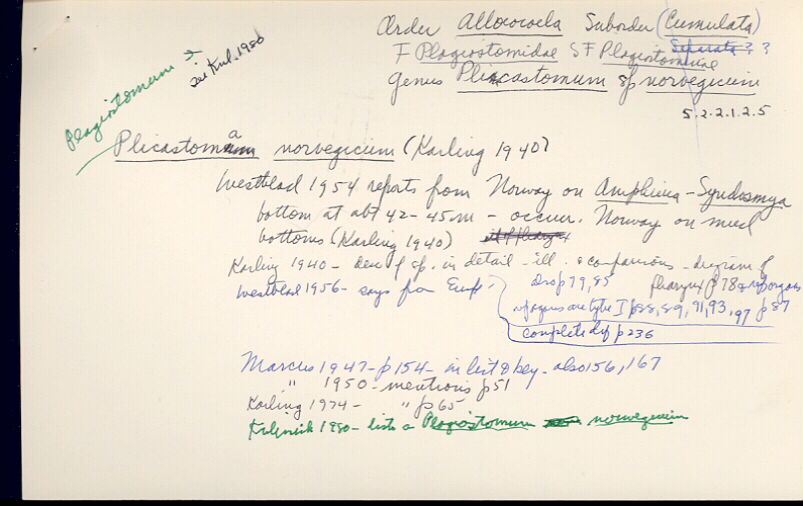 Order Allococoela Suborder (Cumulata)
F Plagiostomidae SF Plagiostominae Separata ? ?
genus Plicastomum sp norvegicum
5.2.2.1.2.5
Plagiostomum
see Kul, 1980
Plicastoma norvegicum (Karling 1940)
Westblad 1954 reports from Norway on Amphiura - Syndosmya
bottom at abt 42-45m - occur. Norway on mud
bottoms (Karling 1940)
Karling 1940 - desc of sp. in detail - ill. & comparisons - diagram of
also p 79, 85 pharynx p 78 & repr organs
Westblad 1956 - says from Eur
organs are type I p 88, 89, 91, 93, 97 p 87
complete desc p 236
Marcus 1947 - p 154 - in list & key - also 156, 167
" 1950 - mentions p 51
Karling 1974 - " p 65
1980 - lists a Plagiostomum norvegicum